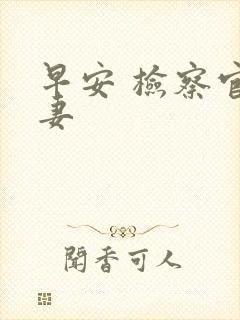 早安 檢察官
妻
聞香可人